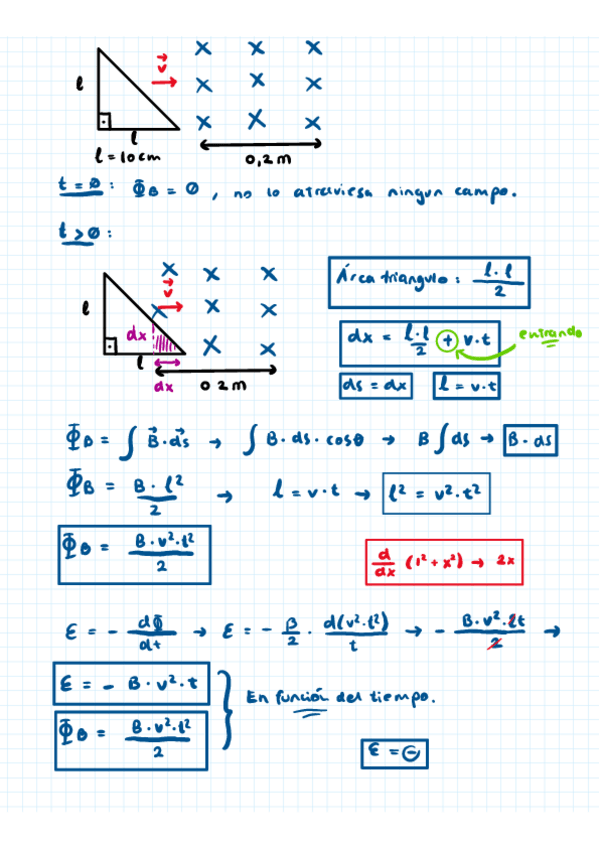 l
v⃗
x x x
x x x
x x x
l
l = 10 cm
0,2 m
t = ∅ : Φ_B = 0 , no lo atraviesa ningun campo.
t > ∅ :
x x x
v⃗
l
x x x
dx
x x
l
dx
0 2 m
Área triangulo : l · l / 2
dx = l · l / 2 + v · t
entrando
ds = dx
l = v · t
Φ_B = ∫ B⃗ · ds⃗ → ∫ B · ds · cosθ → B ∫ ds → B · ds
Φ_B = B · l² / 2 → l = v · t → l² = v² · t²
Φ_B = B · v² · t² / 2
d/dx (1² + x²) → 2x
ε = - dΦ/dt → ε = - B/2 · d(v² · t²)/t → - B · v² · 2t / 2 →
ε = - B · v² · t
Φ_B = B · v² · t² / 2
En función del tiempo.
ε = ⊖